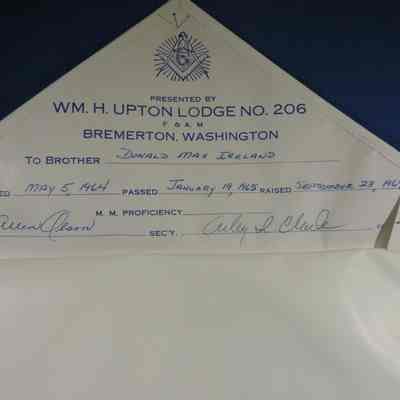 G
PRESENTED BY
WM. H. UPTON LODGE NO. 206
F. & A. M.
BREMERTON, WASHINGTON
TO BROTHER DONALD MAX IRELAND
ED MAY 5, 1964 PASSED JANUARY 19, 1965 RAISED SEPTEMBER 23, 196
Olson M. M. PROFICIENCY
SEC'Y.